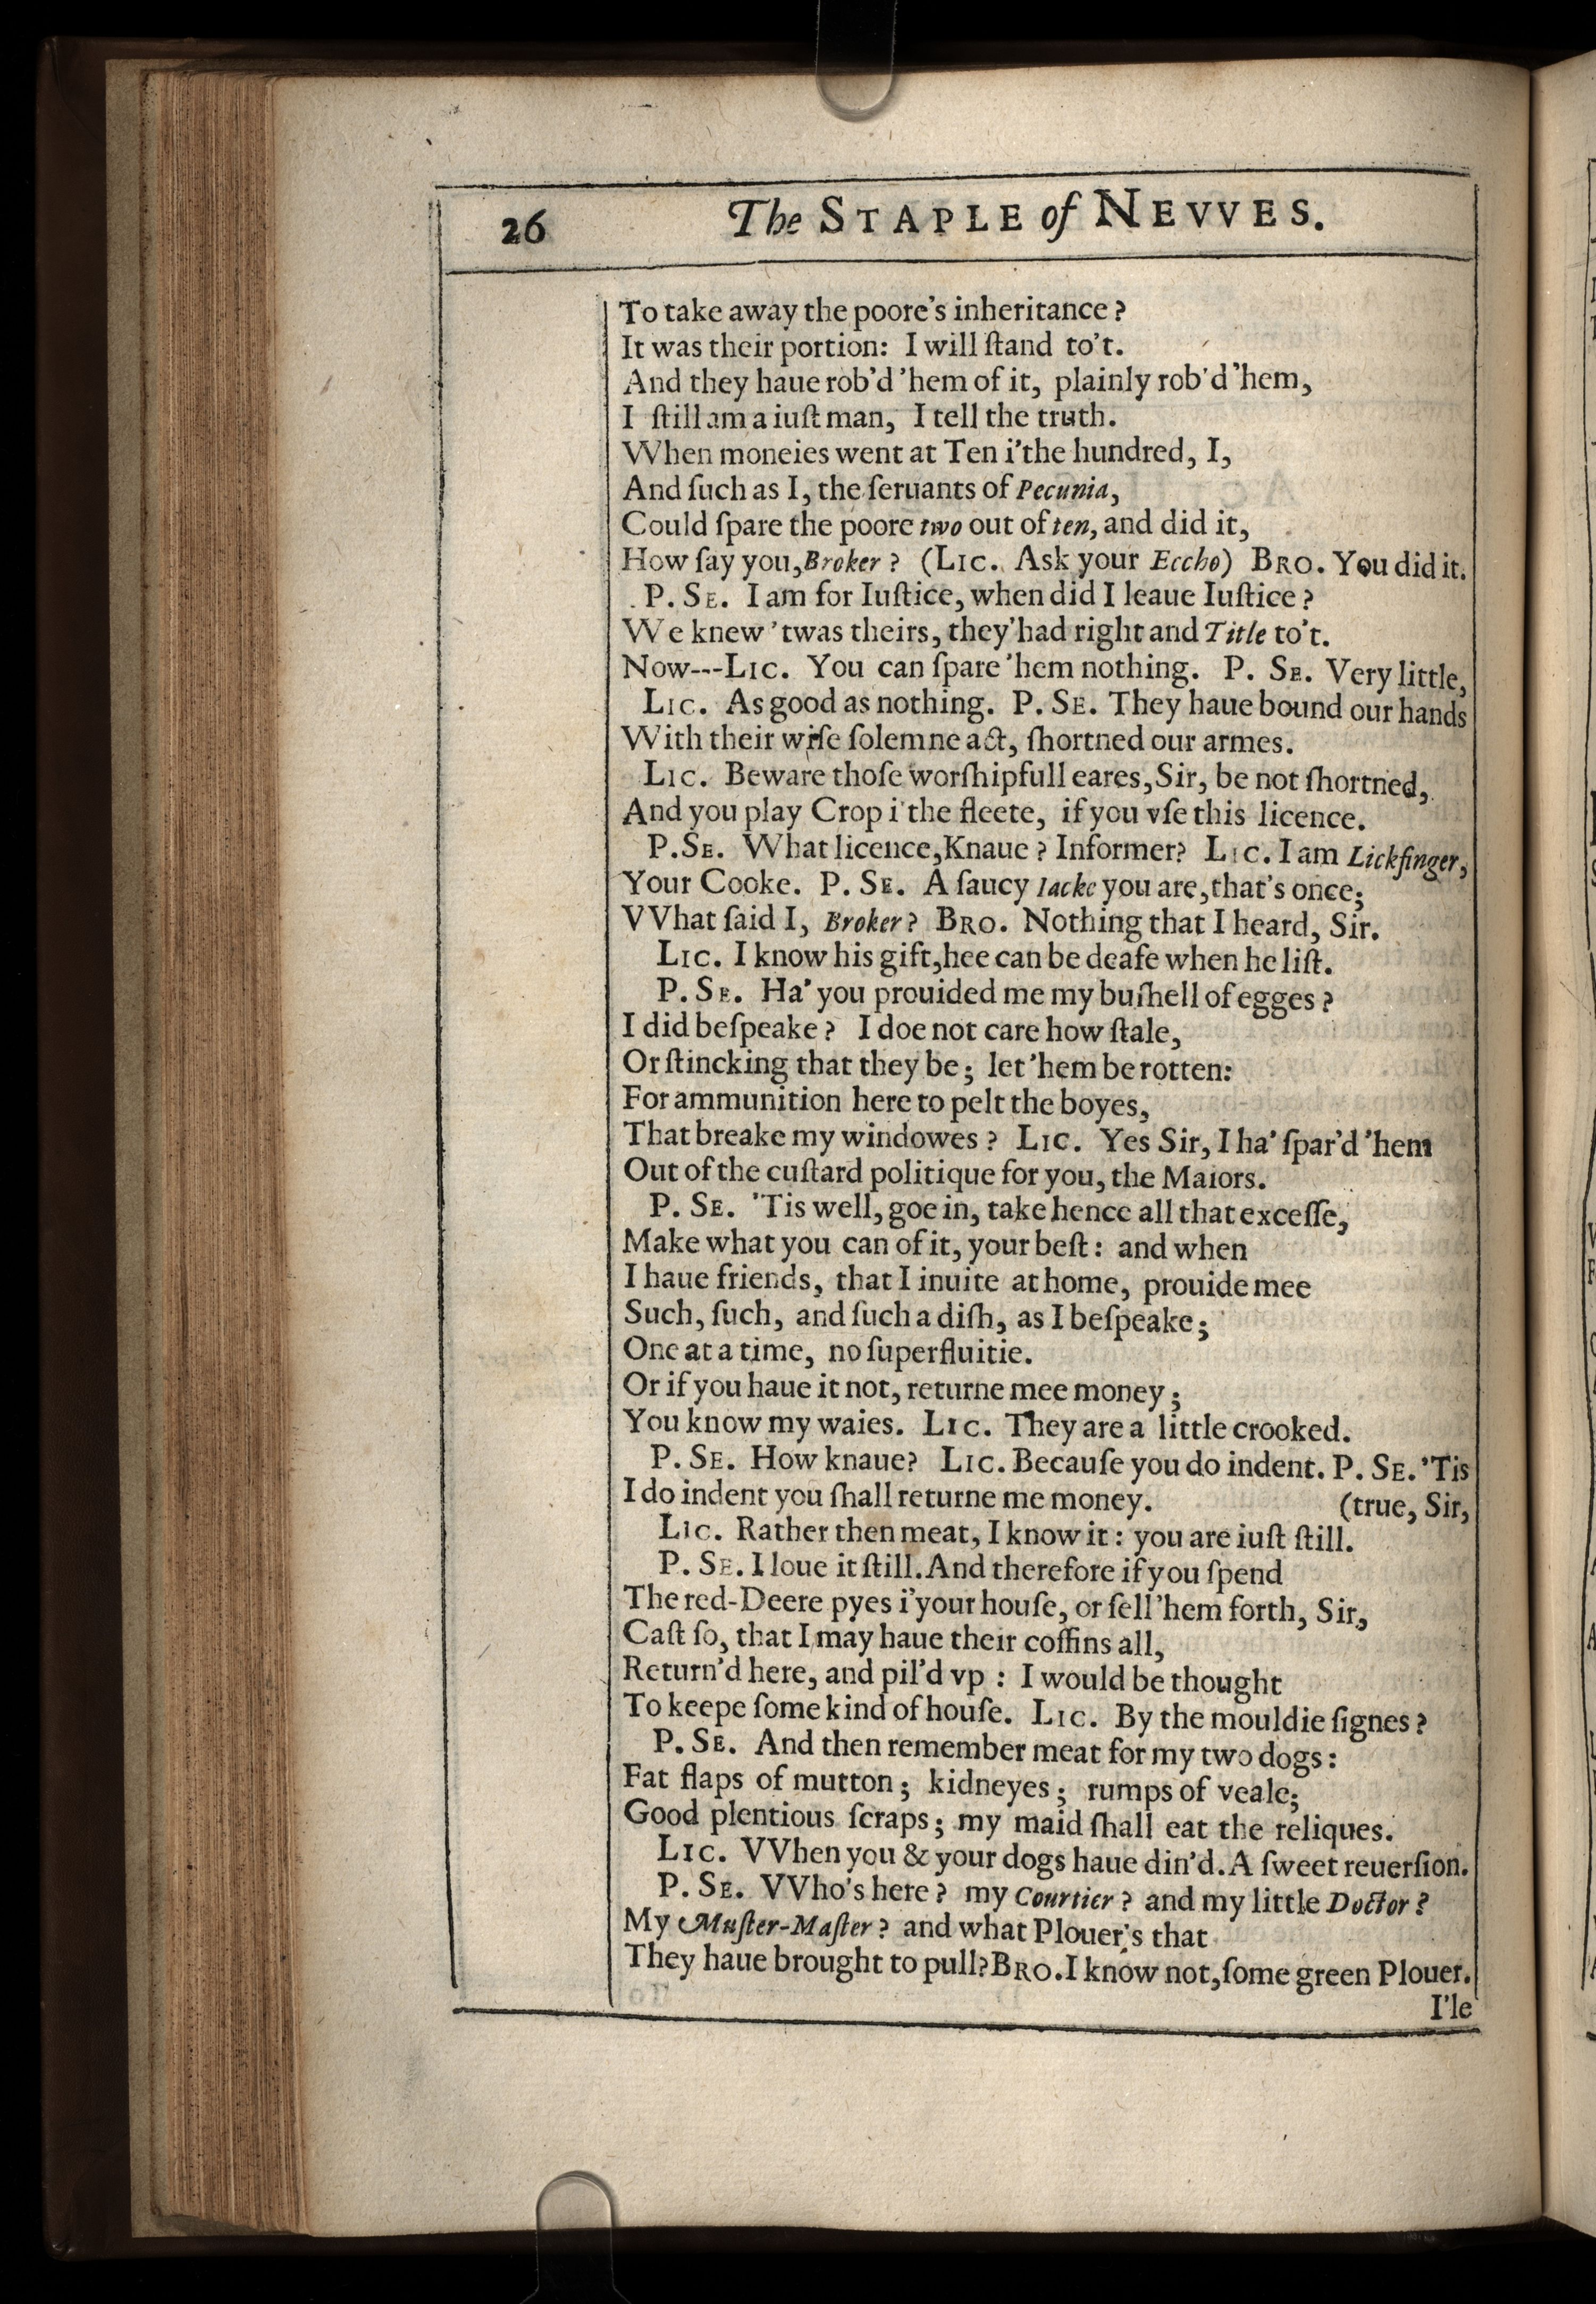 26 The STAPLE of NEVVES.
To take away the poore's inheritance?
It was their portion: I will ſtand to't.
And they haue rob'd 'hem of it, plainly rob'd 'hem,
I ſtill am a iuſt man, I tell the truth.
When moneies went at Ten i'the hundred, I,
And ſuch as I, the ſeruants of Pecunia,
Could ſpare the poore two out of ten, and did it,
How ſay you, Broker? (LIC. Ask your Eccho) BRO. You did it.
P. SE. I am for Iuſtice, when did I leaue Iuſtice?
We knew 'twas theirs, they'had right and Title to't.
Now---LIC. You can ſpare 'hem nothing. P. SE. Very little,
LIC. As good as nothing. P. SE. They haue bound our hands
With their wiſe ſolemne act, ſhortned our armes.
LIC. Beware thoſe worſhipfull eares, Sir, be not ſhortned,
And you play Crop i'the fleete, if you vſe this licence.
P. SE. What licence, Knaue? Informer? LIC. I am Lickfinger,
Your Cooke. P. SE. A ſaucy Iacke you are, that's once;
VVhat ſaid I, Broker? BRO. Nothing that I heard, Sir.
LIC. I know his gift, hee can be deafe when he liſt.
P. SE. Ha' you prouided me my buſhell of egges?
I did beſpeake? I doe not care how ſtale,
Or ſtincking that they be; let 'hem be rotten:
For ammunition here to pelt the boyes,
That breake my windowes? LIC. Yes Sir, I ha' ſpar'd 'hem
Out of the cuſtard politique for you, the Maiors.
P. SE. 'Tis well, goe in, take hence all that exceſſe,
Make what you can of it, your beſt: and when
I haue friends, that I inuite at home, prouide mee
Such, ſuch, and ſuch a diſh, as I beſpeake;
One at a time, no ſuperfluitie.
Or if you haue it not, returne mee money;
You know my waies. LIC. They are a little crooked.
P. SE. How knaue? LIC. Becauſe you do indent. P. SE. 'Tis
I do indent you ſhall returne me money. (true, Sir,
LIC. Rather then meat, I know it: you are iuſt ſtill.
P. SE. I loue it ſtill. And therefore if you ſpend
The red-Deere pyes i'your houſe, or ſell 'hem forth, Sir,
Caſt ſo, that I may haue their coffins all,
Return'd here, and pil'd vp: I would be thought
To keepe ſome kind of houſe. LIC. By the mouldie ſignes?
P. SE. And then remember meat for my two dogs:
Fat flaps of mutton; kidneyes; rumps of veale;
Good plentious ſcraps; my maid ſhall eat the reliques.
LIC. VVhen you & your dogs haue din'd. A ſweet reuerſion.
P. SE. VVho's here? my Courtier? and my little Doctor?
My Muſter-Maſter? and what Plouer's that
They haue brought to pull? BRO. I know not, ſome green Plouer.
I'le